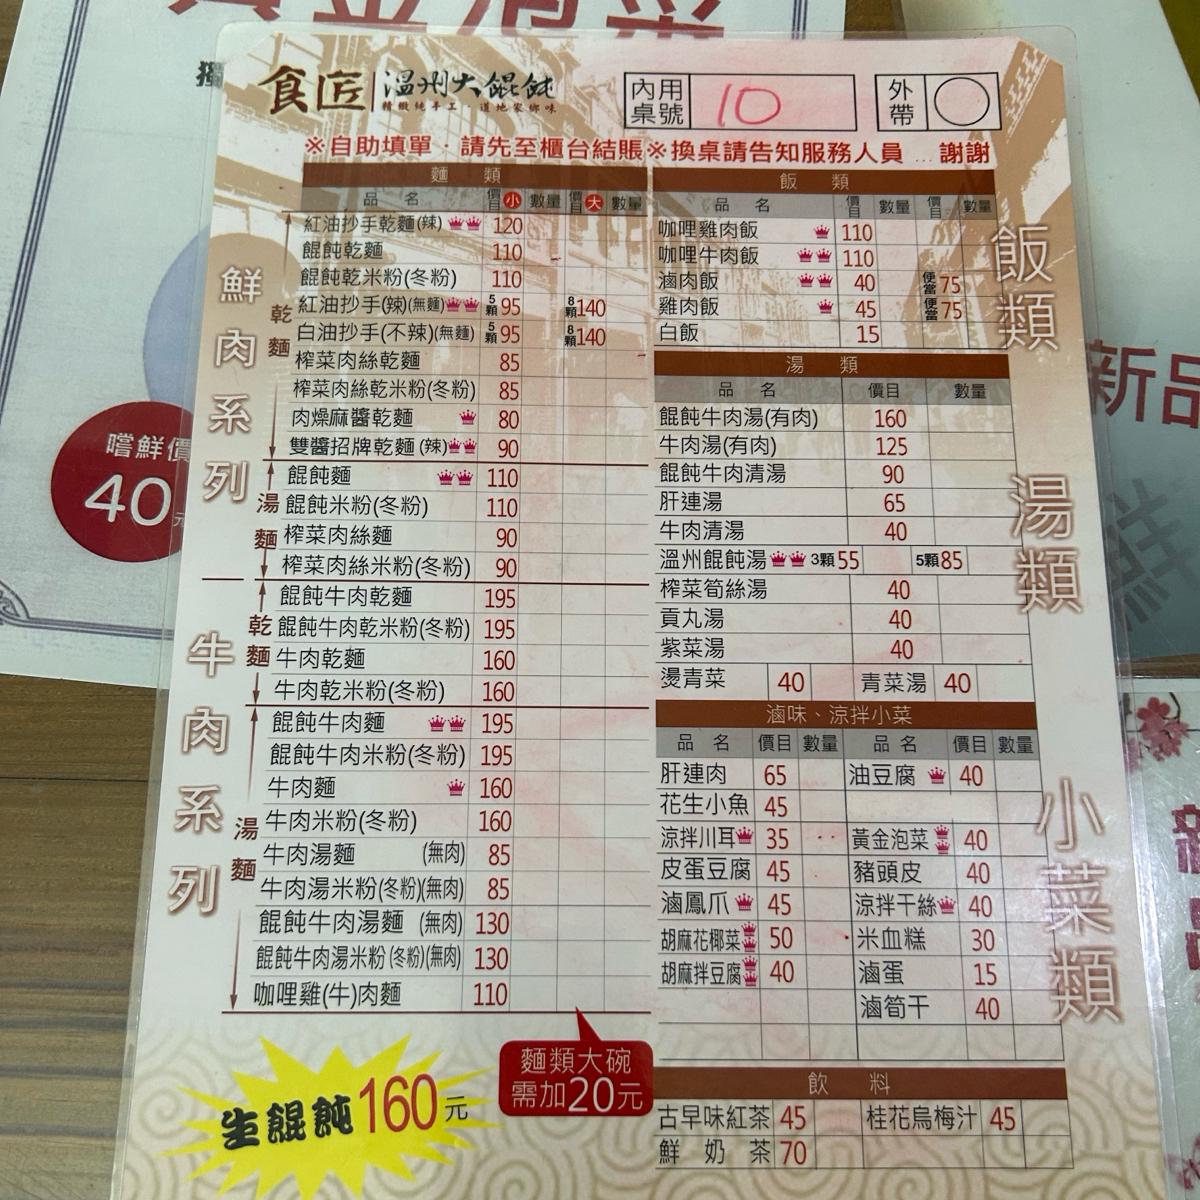 食匠 溫州大餛飩
精緻純手工．道地家鄉味
內用桌號 10
外帶
※自助填單．請先至櫃台結賬※換桌請告知服務人員…謝謝
麵 類
品 名 價目 小 數量 價目 大 數量
鮮肉系列
乾麵
紅油抄手乾麵(辣) 120
餛飩乾麵 110
餛飩乾米粉(冬粉) 110
紅油抄手(辣)(無麵) 5顆 95 8顆 140
白油抄手(不辣)(無麵) 5顆 95 8顆 140
榨菜肉絲乾麵 85
榨菜肉絲乾米粉(冬粉) 85
肉燥麻醬乾麵 80
雙醬招牌乾麵(辣) 90
湯麵
餛飩麵 110
餛飩米粉(冬粉) 110
榨菜肉絲麵 90
榨菜肉絲米粉(冬粉) 90
牛肉系列
乾麵
餛飩牛肉乾麵 195
餛飩牛肉乾米粉(冬粉) 195
牛肉乾麵 160
牛肉乾米粉(冬粉) 160
湯麵
餛飩牛肉麵 195
餛飩牛肉米粉(冬粉) 195
牛肉麵 160
牛肉米粉(冬粉) 160
牛肉湯麵 (無肉) 85
牛肉湯米粉(冬粉)(無肉) 85
餛飩牛肉湯麵 (無肉) 130
餛飩牛肉湯米粉(冬粉)(無肉) 130
咖哩雞(牛)肉麵 110
麵類大碗
需加20元
生餛飩160元
飯類
飯 類
品 名 價目 數量 價目 數量
咖哩雞肉飯 110
咖哩牛肉飯 110
滷肉飯 40 便當 75
雞肉飯 45 便當 75
白飯 15
湯類
湯 類
品 名 價目 數量
餛飩牛肉湯(有肉) 160
牛肉湯(有肉) 125
餛飩牛肉清湯 90
肝連湯 65
牛肉清湯 40
溫州餛飩湯 3顆 55 5顆 85
榨菜筍絲湯 40
貢丸湯 40
紫菜湯 40
燙青菜 40 青菜湯 40
小菜類
滷味、涼拌小菜
品 名 價目 數量 品 名 價目 數量
肝連肉 65 油豆腐 40
花生小魚 45
涼拌川耳 35 黃金泡菜 40
皮蛋豆腐 45 豬頭皮 40
滷鳳爪 45 涼拌干絲 40
胡麻花椰菜 50 米血糕 30
胡麻拌豆腐 40 滷蛋 15
滷筍干 40
飲 料
古早味紅茶 45 桂花烏梅汁 45
鮮奶茶 70
嚐鮮價
40元
新品
鮮